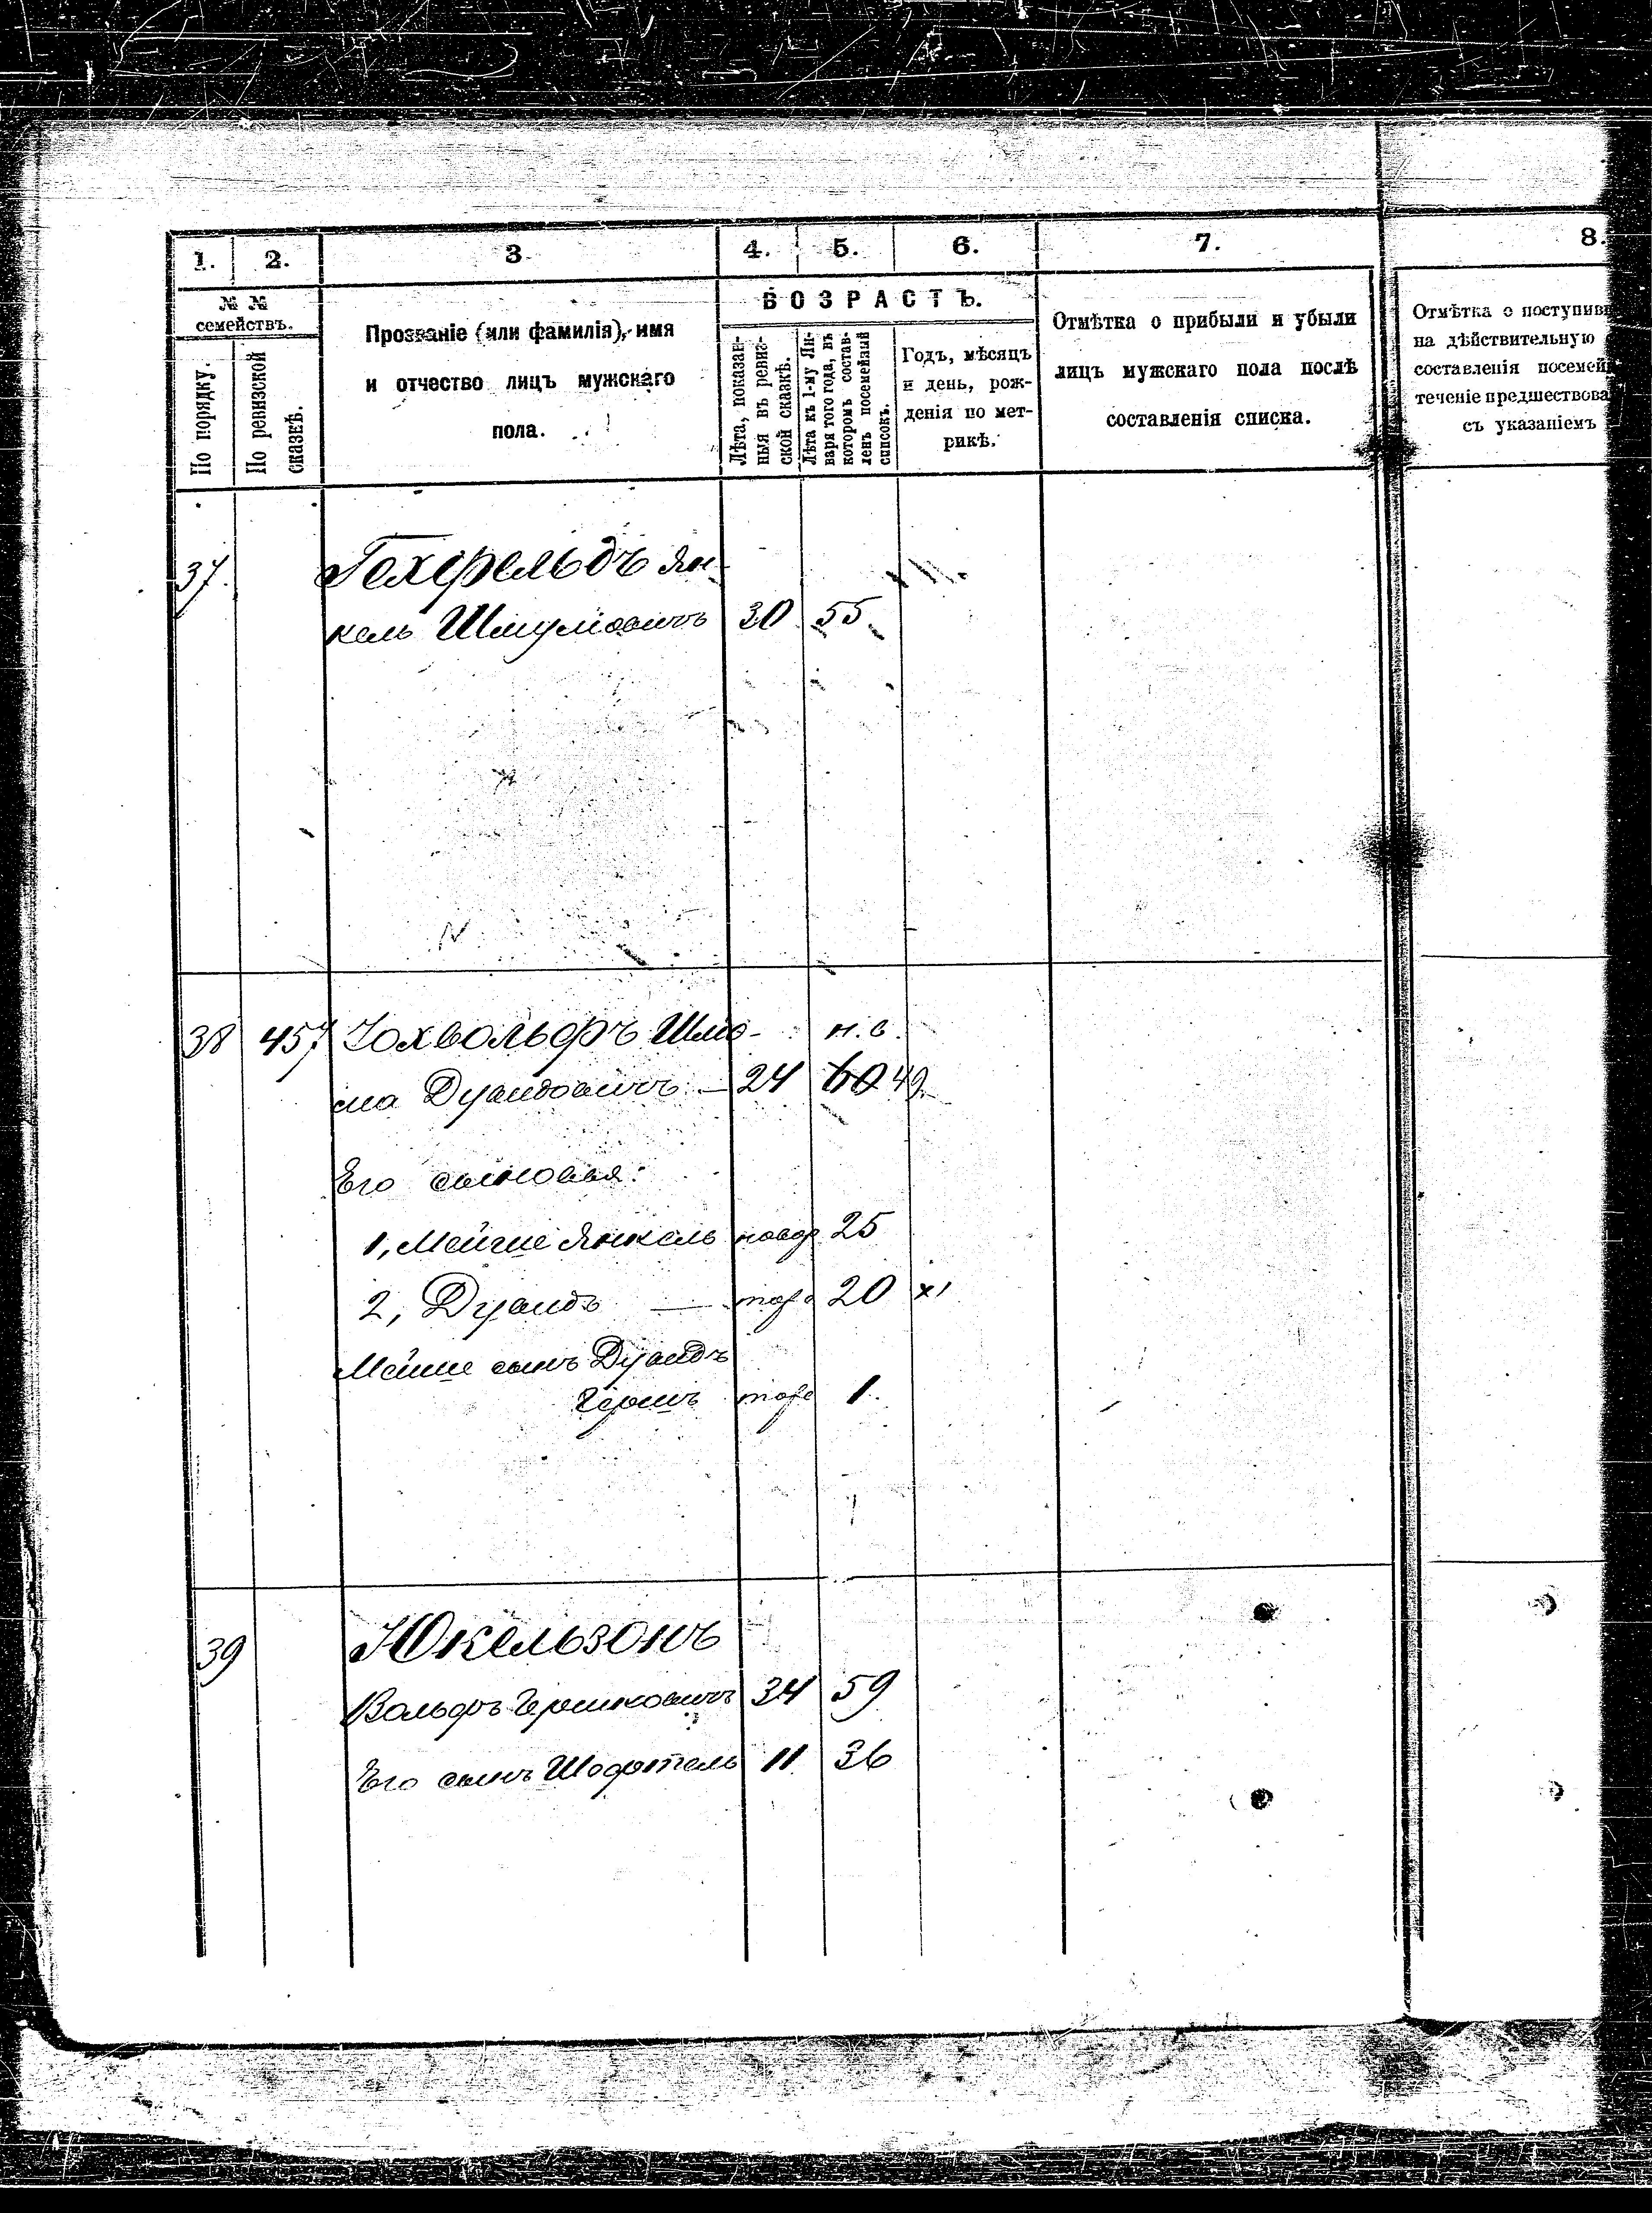 1. 2. 3. 4. 5. 6. 7. 8.
№ №
семействъ.
По порядку.
По ревизской
сказкѣ.
Прозваніе (или фамилія), имя
и отчество лицъ мужскаго
пола.
ВОЗРАСТЪ.
Лѣта, показан-
ныя въ ревиз-
ской сказкѣ.
Лѣта къ 1-му Ян-
варя того года, въ
которомъ состав-
ленъ посемейный
списокъ.
Годъ, мѣсяцъ
и день, рож-
денія по мет-
рикѣ.
Отмѣтка о прибыли и убыли
лицъ мужскаго пола послѣ
составленія списка.
Отмѣтка о поступив
на дѣйствительную
составленія посемей
теченіе предшествова
съ указаніемъ
37. Гехфельдъ Ян-
кель Шмуловичъ 30 55
38 457 Шлио- н. в.
ма Дувидовичъ — 24 60 49
Его сыновья:
1, Мейше Янкель новор 25
2, Дувидъ — тоже 20 х1
Мейше сынъ Дувидъ
Гершъ тоже 1.
39 Юкельзонъ
Вольфъ Гершковичъ 34 59
Его сынъ Шофтель 11 36